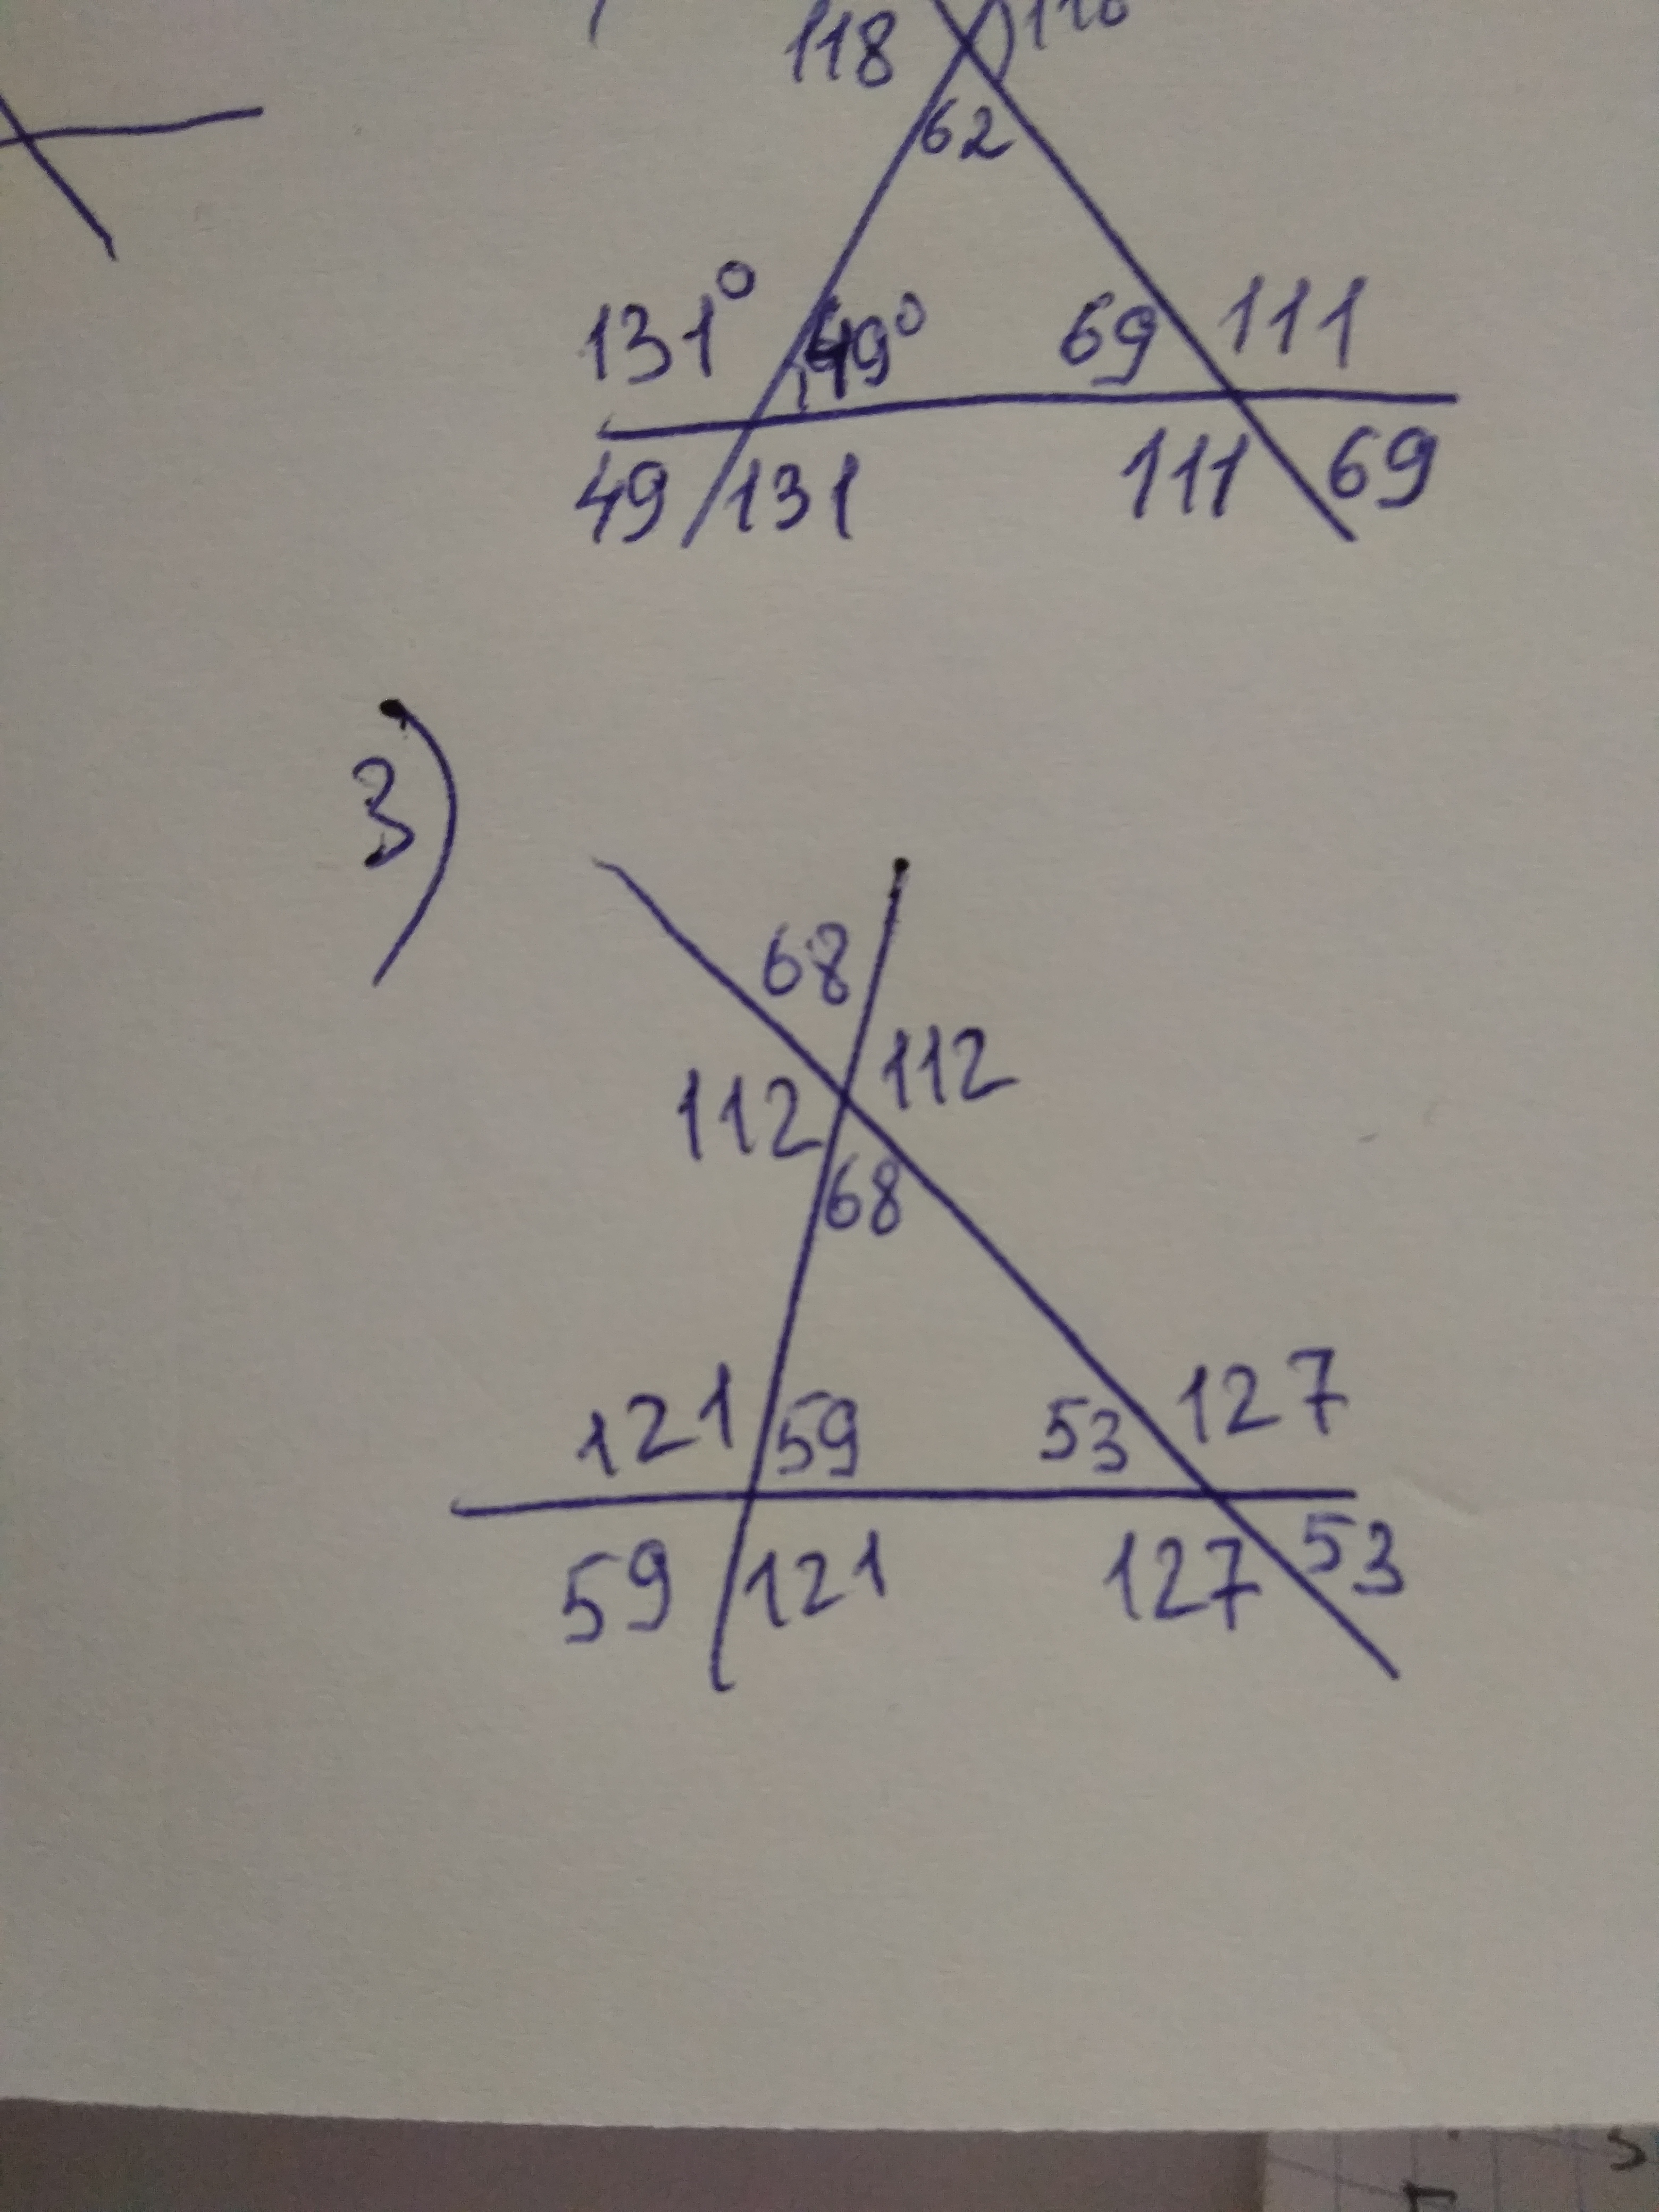 118
62
131° 49° 69 111
49 131 111 69
3)
68
112 112
68
121 59 53 127
59 121 127 53